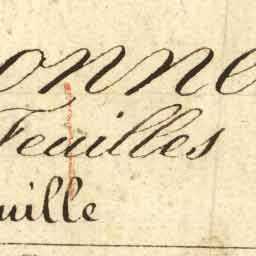 onne
Feuilles
uille